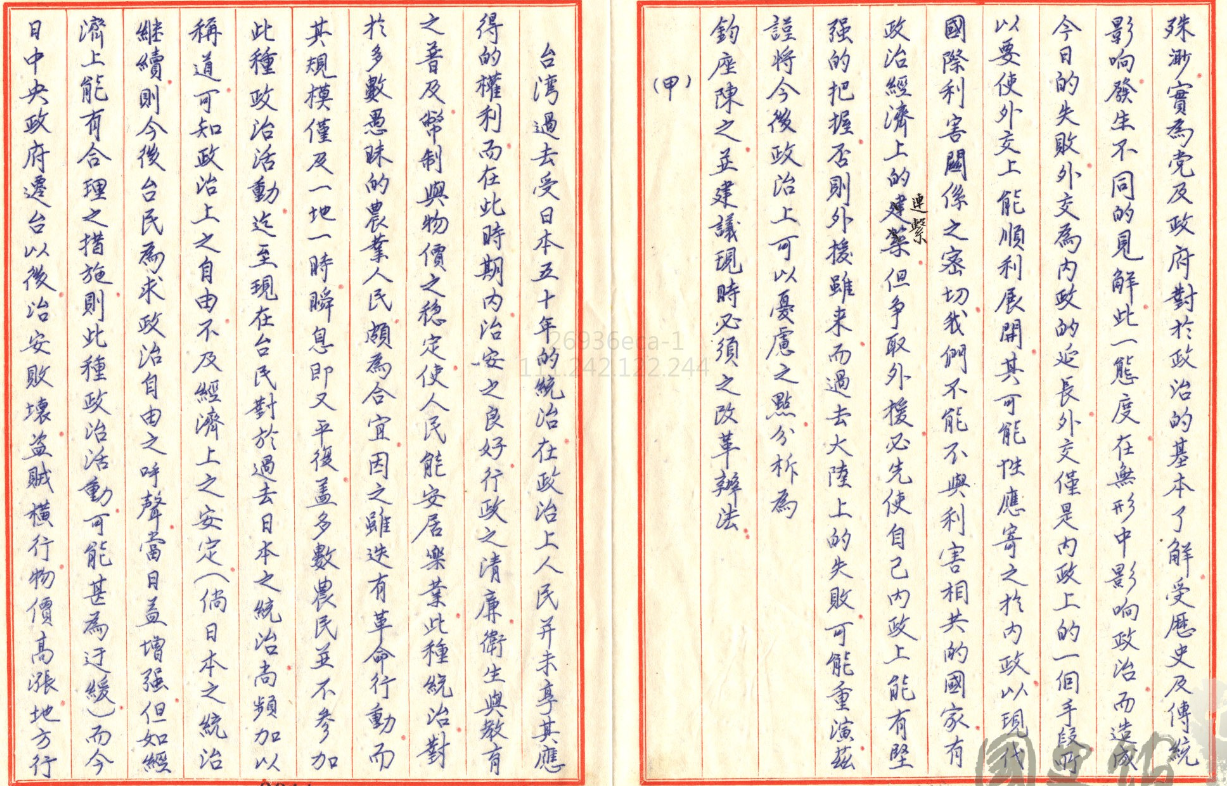 殊渺實為党及政府對於政治的基本了解受歷史及傳統
影响發生不同的見解此一態度在無形中影响政治而造成
今日的失敗外交為內政的延長外交僅是內政上的一個手段所
以要使外交上能順利展開其可能性應寄之於內政以現代
國際利害關係之密切我們不能不與利害相共的國家有
政治經濟上的連繫但争取外援必先使自己內政上能有堅
强的把握否則外援雖来而過去大陸上的失敗可能重演茲
謹將今後政治上可以憂慮之點分析為
鈞座陳之並建議現時必須之改革辦法
(甲)
台湾過去受日本五十年的統治在政治上人民并未享其應
得的權利而在此時期內治安之良好行政之清廉衛生與教育
之普及幣制與物價之稳定使人民能安居樂業此種統治對
於多數愚昧的農業人民頗為合宜因之雖迭有革命行動而
其規模僅及一地一時瞬息即又平復蓋多數農民並不參加
此種政治活動迄至現在台民對於過去日本之統治尚頻加以
稱道可知政治上之自由不及經濟上之安定(倘日本之統治
継續則今後台民為求政治自由之呼聲當日益增强但如經
濟上能有合理之措施則此種政治活動可能甚為迂緩)而今
日中央政府遷台以後治安敗壞盗賊橫行物價高漲地方行
26936eca-1
111.242.122.244
國史館